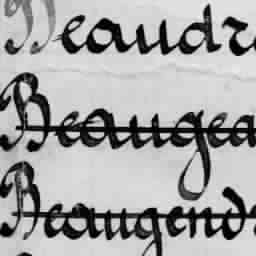 Beaudr
Beaugea
Beaugend